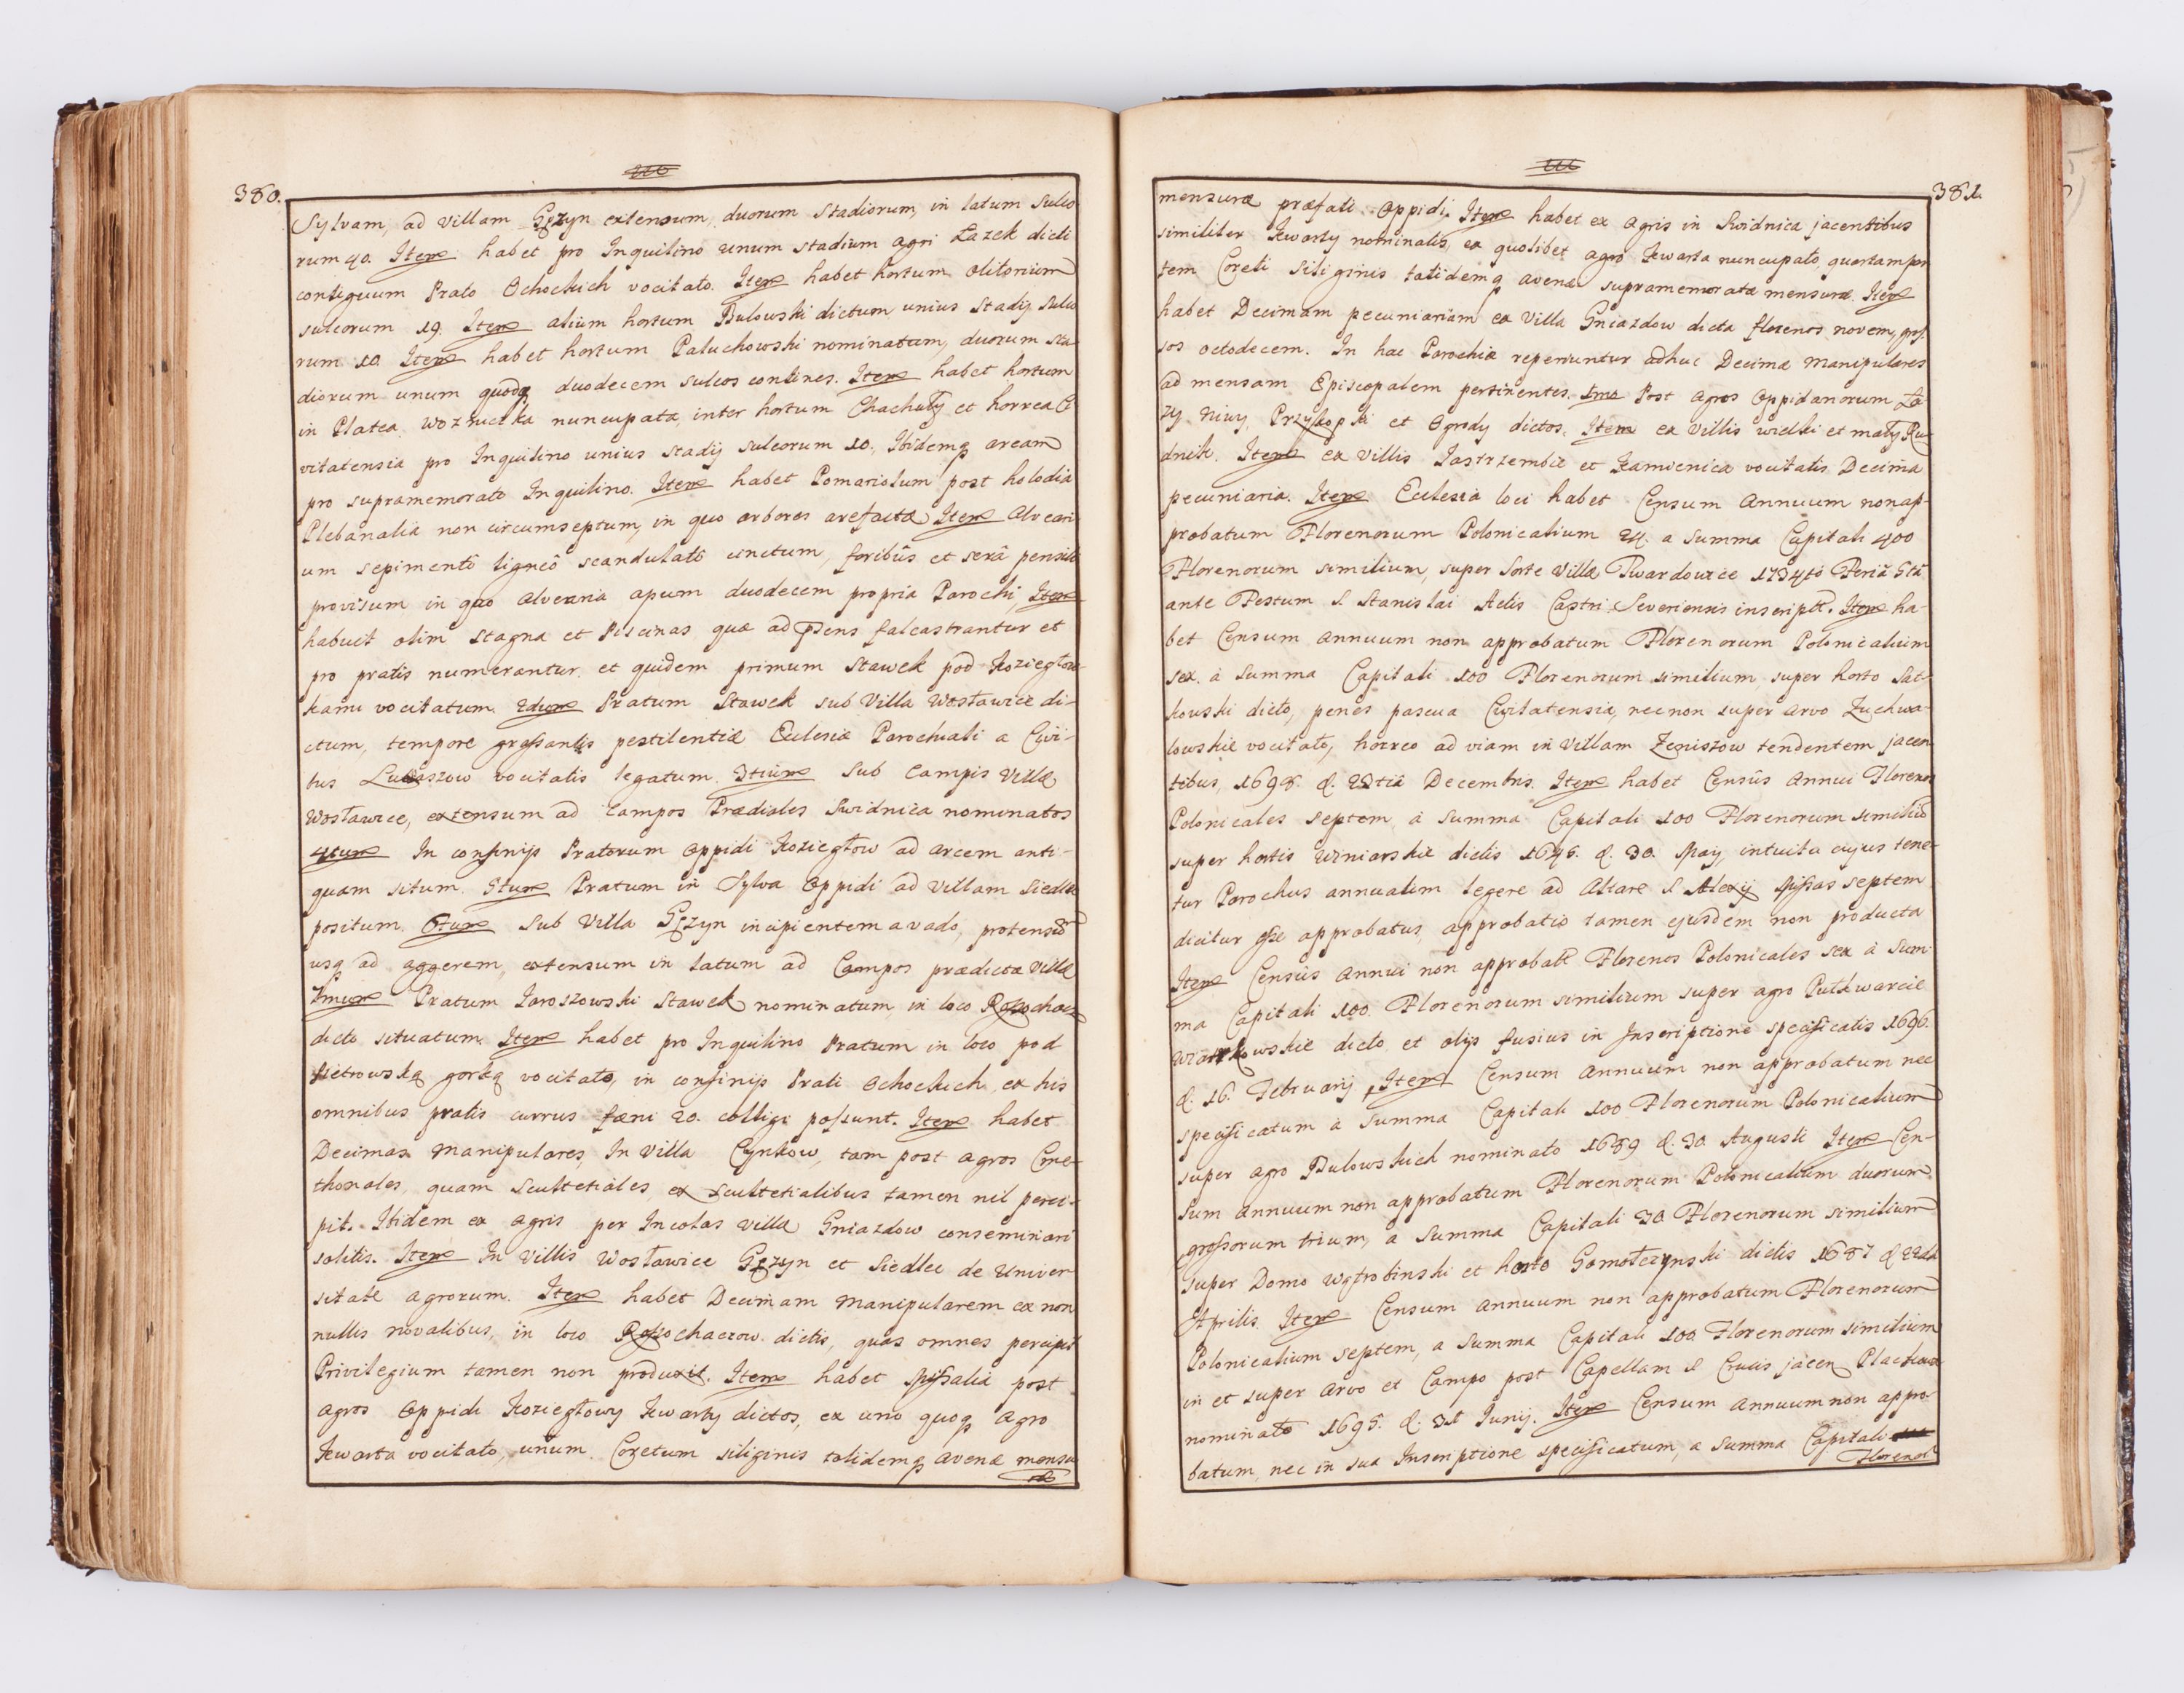 380.
Sylvam, ad villam Gęzyn extensum, duorum Stadiorum, in latum Sulco
rum 40. Item habet pro Inquilino unum stadium agri Łazek dicti
contiguum Prato Ochockich vocitato. Item habet hortum olitorium
sulcorum 19. Item alium hortum Bulowski dictum unius Stadij Sulco
rum 10. Item habet hortum Paluchowski nominatum, duorum sta
diorum unum quodq duodecem sulcos contines. Item habet hortum
in Platea Woznicka nuncupata, inter hortum Chachuły et horrea Ci
vitatensia pro Inquilino unius stadij sulcorum 10. Ibidemq aream
pro supramemorato Inquilino. Item habet Pomariolum post holodia
Plebanalia non circumseptum, in quo arbores arefactæ Item alveari
um sepimentô ligneô scandulatô cinctum, foribûs et serâ pensili
provisum in quo alvearia apum duodecem propria Parochi, Item
habuit olim stagna et Piscinas quæ ad Psens falcastrantur et
pro pratis numerantur. et quidem primum Stawek pod Koziegłow
kami vocitatum. 2dum Pratum Stawek sub Villa Wosławice di-
ctum, tempore graſsantis pestilentiæ Ecclesiæ Parochiali a Civi-
bus vocitatis legatum. 3tium Sub Campis Villæ
Wosławice, extensum ad Campos Prædiales Swidnica nominatos
4tum In confinijs Pratorum Oppidi Koziegłow ad arcem anti-
quam situm. 5tum Pratum in Sylva Oppidi ad Villam Siedlce
positum. 6tum Sub Villa Gęzyn incipientem a vado, protensũ
usq ad aggerem, extensum in latum ad Campos prædictæ Villæ
7mum Pratum Jaroszowski Stawek nominatum, in loco
dicto situatum. Item habet pro Inquilino Pratum in loco pod
Pietrowską gorką vocitato, in confinijs Prati Ochockich, ex his
omnibus pratis currus fæni 20. colligi poſsunt. Item habet
Decimas Manipulares, In Villa Cynkow, tam post agros Cme-
thonales, quam Scultetiales, ex Scultetialibus tamen nil perci-
pit. Itidem ex agris per Incolas Villæ Gniazdow conseminari
solitis. Item In Villis Wosławice Gęzyn et Siedlce de Univer
sitate agrorum. Item habet Decimam Manipularem ex non
nullis novalibus, in loco dictis, quas omnes percipit
Privilegium tamen non produxit. Item habet Miſsalia post
agros Oppidi Koziegłowy Kwarty dictos, ex uno quoq agro
Kwarta vocitato, unum Coretum siliginis totidemq avenæ mensu
ræ
381.
mensuræ præfati Oppidi. Item habet ex agris in Swidnica jacentibus
similiter Kwarty nominatis, ex quolibet agro Kwarta nuncupato, quartam par
tem Coreti Siliginis totidemq avenæ supramemoratæ mensuræ. Item
habet Decimam pecuniariam ex Villa Gniazdow dicta florenos novem, groſ
sos octodecem. In hac Parochia reperiuntur adhuc Decimæ Manipulares
ad mensam Episcopalem pertinentes. 1ma Post agros Oppidanorum Ła
zy Niwy, Przykopki et Ogrody dictos. Item ex Villis wielki et mały Ru
dnik. Item ex Villis Jastrzembie et Kamienica vocitatis Decima
pecuniaria. Item Ecclesia loci habet Censum annuum non ap-
probatum Florenorum Polonicalium 24. a Summa Capitali 400
Florenorum similium, super Sorte Villæ Twardowice 1734tô Feriâ 5tâ
ante Festum S. Stanislai Actis Castri Severiensis inscript. Item ha-
bet Censum annuum non approbatum Florenorum Polonicalium
sex. à Summa Capitali 100 Florenorum similium, super horto Sał-
kowski dicto, penes pascua Civitatensia, nec non super arvo Zuchwa-
lowskie vocitato, horreo ad viam in Villam Zeniszow tendentem jacen
tibus, 1698. d. 23tiâ Decembris. Item habet Censûs annui Florenos
Polonicales septem à Summa Capitali 100 Florenorum similiũ
super hortis Winiarskie dictis d. 30. Maij, intuitu cujus tene-
tur Parochus annuatim legere ad Altare S Alexij Miſsas septem
dicitur eſse approbatus, approbatio tamen ejusdem non producta
Item Censûs annui non approbati Florenos Polonicales sex à Sum-
ma Capitali 100. Florenorum similium super agro Pułkwarcie
dicto et alijs fusius in Inscriptione specificatis 1696.
d. 16. Februarij, Item Censum annuum non approbatum nec
specificatum à Summa Capitali 100 Florenorum Polonicalium
super agro Bulowskich nominato 1689 d. 30. Augusti Item Cen-
sum annuum non approbatum Florenorum Polonicalium duorum
groſsorum trium, à Summa Capitali 30. Florenorum similium
super Domo Wątrobinski et horto dictis 1687 d 22da
Aprilis. Item Censum annuum non approbatum Florenorum
Polonicalium septem, a Summa Capitali 100 Florenorum similium
in et super arvo et Campo post Capellam S Crucis jacen
nominato 1695. d. 31 Junij. Item Censum annuum non appro-
batum, nec in sua Inscriptione specificatum, a Summa Capitali
Florenor